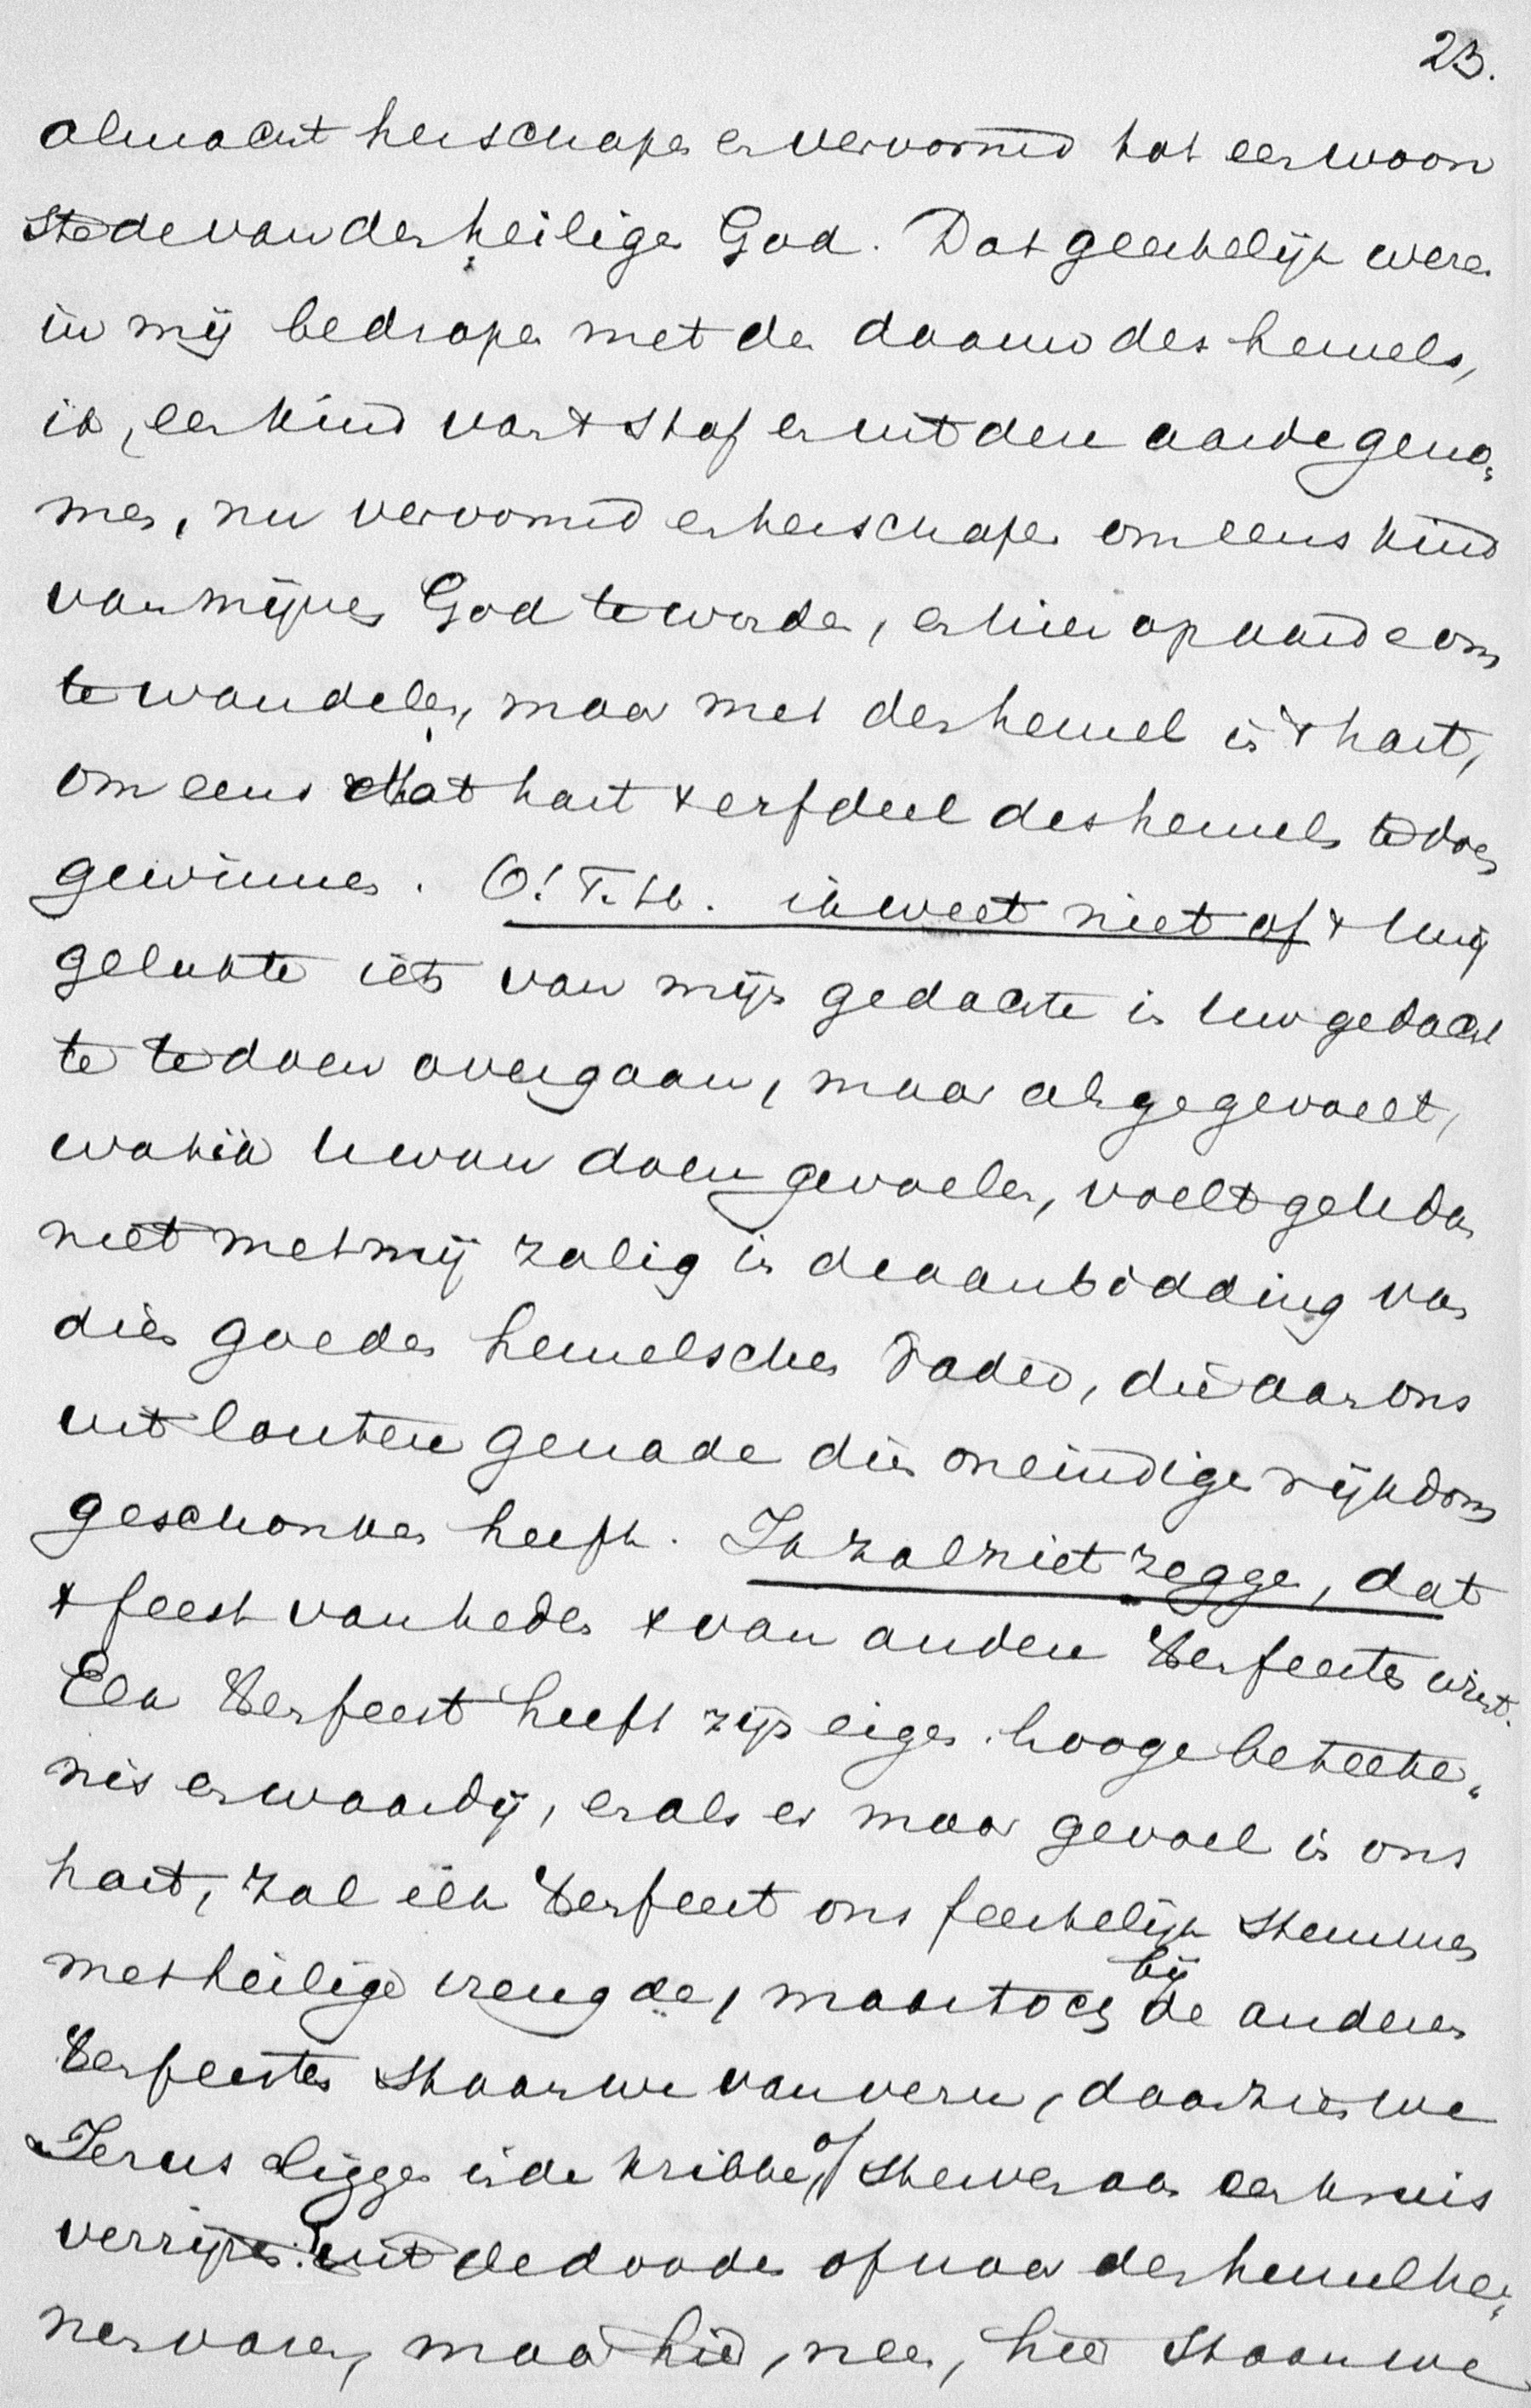 23.
almacht herschapen en vervormd tot een woon
stede van den heiligen God. Dat geestelijk weze
in mij bedropen met den daauw des hemels,
ik, een kind van 't stof en uit den aarde geno„
men, nu vervormd en herschapen om eens kind
van mijnen God te worden, en hier op aarde om
te wandelen, maar met den hemel in 't hart,
om eens dat hart 't erfdeel des hemels te doen
gewinnen. O! T. H. ik weet niet of 't mij
gelukte iets van mijn gedachte in uw gedach
te te doen overgaan, maar als ge gevoelt,
wat ik U wou doen gevoelen, voelt ge U dan
niet met mij zalig in de aanbidding van
dien goeden hemelschen Vader, die aan ons
uit loutere genade dien oneindigen rijkdom
geschonken heeft. Ik zal niet zeggen, dat
't feest van heden 't van andere Kerkfeesten wint.
Elk Kerkfeest heeft zijn eigen hooge beteeke„
nis en waardij, en als er maar gevoel in ons
hart, zal elk Kerkfeest ons feestelijk stemmen
met heilige vreugde, maar toch bij de anderen
Kerkfeesten staan we van verre, daar zien we
Jezus liggen in de kribbe, of sterven aan een kruis
verrijzen uit de dooden of naar den hemel he„
nenvaren, maar hier, neen, hier staan we